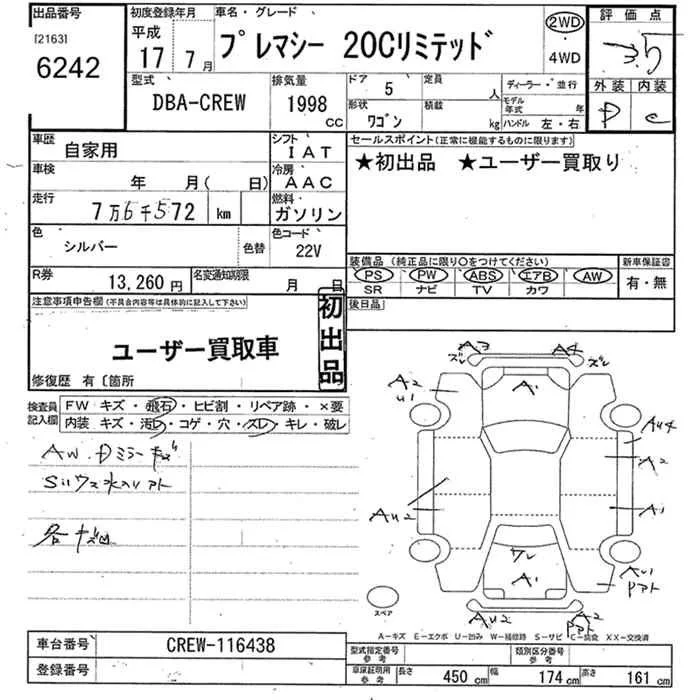 出品番号
[2163]
6242
初度登録年月
平成
17 7月
車名・グレード
プレマシー 20Cリミテッド
2WD
4WD
評価点
3.5
外装 内装
D C
型式
DBA-CREW
排気量
1998 cc
ドア 5
形状 ワゴン
定員 人
積載 kg
ディーラー・並行
モデル年式 年
ハンドル 左・右
車歴
自家用
シフト
IAT
車検
年 月( 日)
冷房
AAC
走行
7万6千572 km
燃料
ガソリン
色
シルバー
色替
色コード
22V
R券
13,260円
名変通知期限
月 日
セールスポイント(正常に機能するものに限ります)
★初出品 ★ユーザー買取り
装備品 (純正品に限り○をつけてください)
PS PW ABS エアB AW
SR ナビ TV カワ
新車保証書
有・無
後日品
注意事項申告欄(不具合内容等は具体的に記入して下さい)
初出品
ユーザー買取車
修復歴 有〔箇所
検査員記入欄
FW キズ・飛石・ヒビ割・リペア跡・×要
内装 キズ・汚れ・コゲ・穴・スレ・キレ・破レ
AW.Dミラーキズ
各キズ凹
A3 A4
ズレ ズレ
A1
A2
U1
AU4
A2
A1
AU2
ワレ
A1
AU1
Pアト
AU2 A2
Pアト
スペア
A−キズ E−エクボ U−凹み W−補修跡 S−サビ C−腐食 XX−交換済
車台番号
CREW-116438
登録番号
型式指定番号
参考
類別区分番号
参考
車庫証明用
参考
長さ 450 cm 幅 174 cm 高さ 161 cm